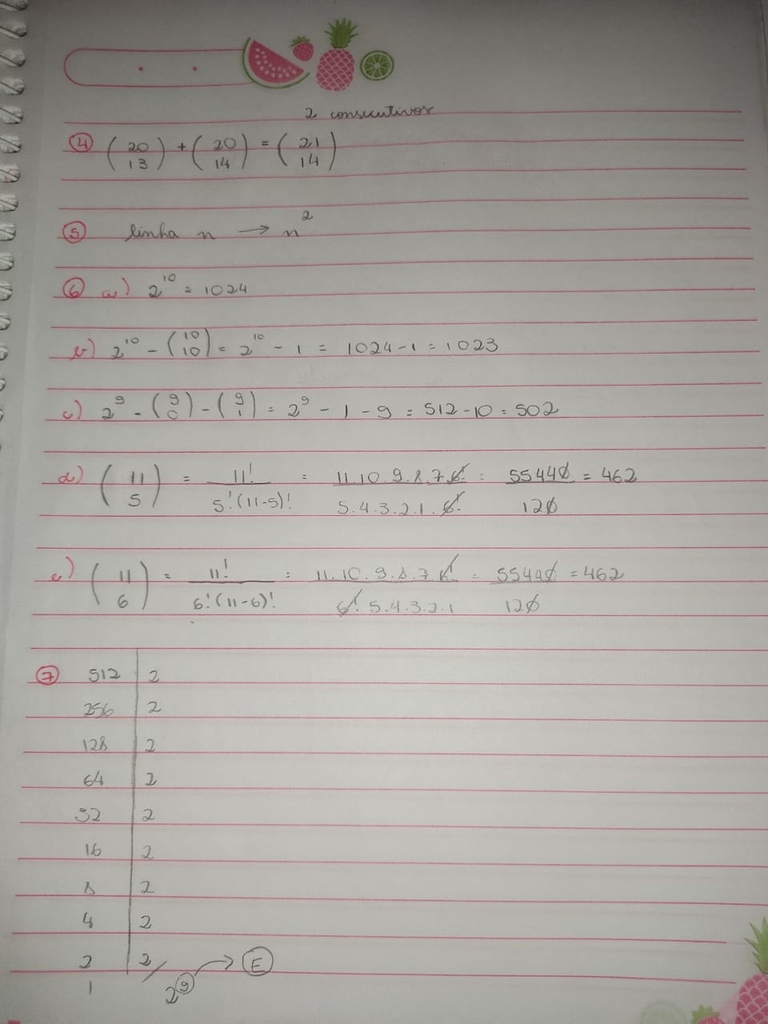 2 consecutivos
④ (20 13) + (20 14) = (21 14)
⑤ linha n → n²
⑥ a) 2¹⁰ = 1024
b) 2¹⁰ - (10 10) = 2¹⁰ - 1 = 1024-1 = 1023
c) 2⁹ - (9 0) - (9 1) = 2⁹ - 1 - 9 = 512-10 = 502
d) (11 5) = 11! / 5!(11-5)! = 11.10.9.8.7.6! / 5.4.3.2.1.6! = 55440 / 120 = 462
e) (11 6) = 11! / 6!(11-6)! = 11.10.9.8.7.6! / 6!.5.4.3.2.1 = 55440 / 120 = 462
⑦ 512 | 2
256 | 2
128 | 2
64 | 2
32 | 2
16 | 2
8 | 2
4 | 2
2 | 2
1 / 2⁹ → Ⓔ